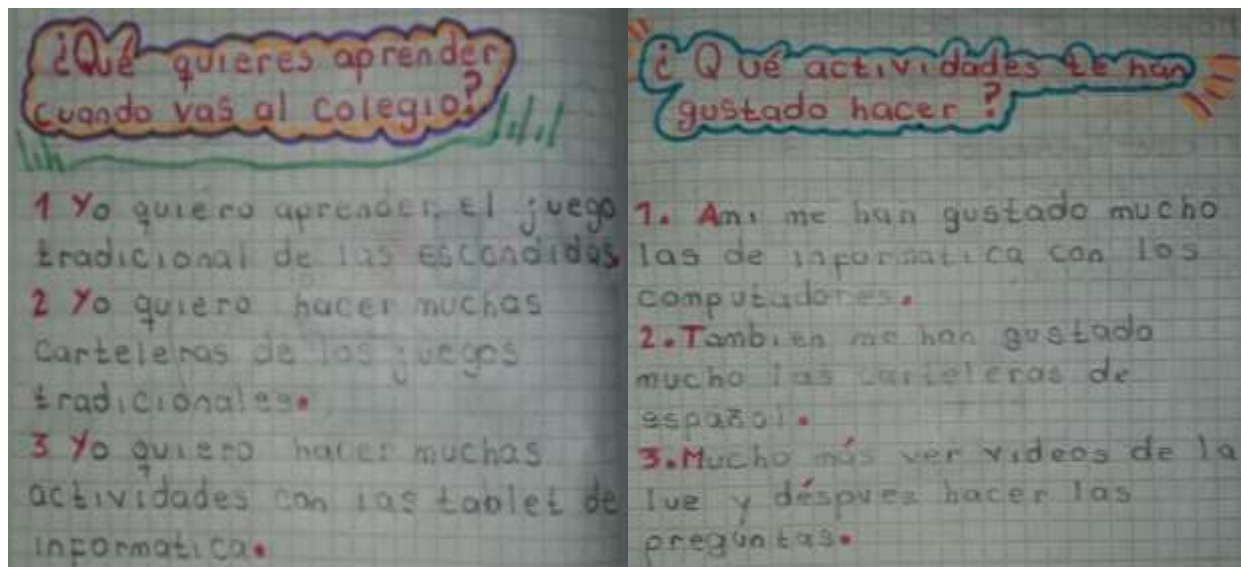 ¿Qué quieres aprender
cuando vas al colegio?
1 Yo quiero aprender el juego
tradicional de las escondidas
2 Yo quiero hacer muchas
carteleras de los juegos
tradicionales.
3 Yo quiero hacer muchas
actividades con las tablet de
informatica.
¿Qué actividades te han
gustado hacer?
1. Ami me han gustado mucho
las de informatica con los
computadores.
2. Tambien me han gustado
mucho las carteleras de
español.
3. Mucho más ver videos de la
lue y déspuez hacer las
preguntas.